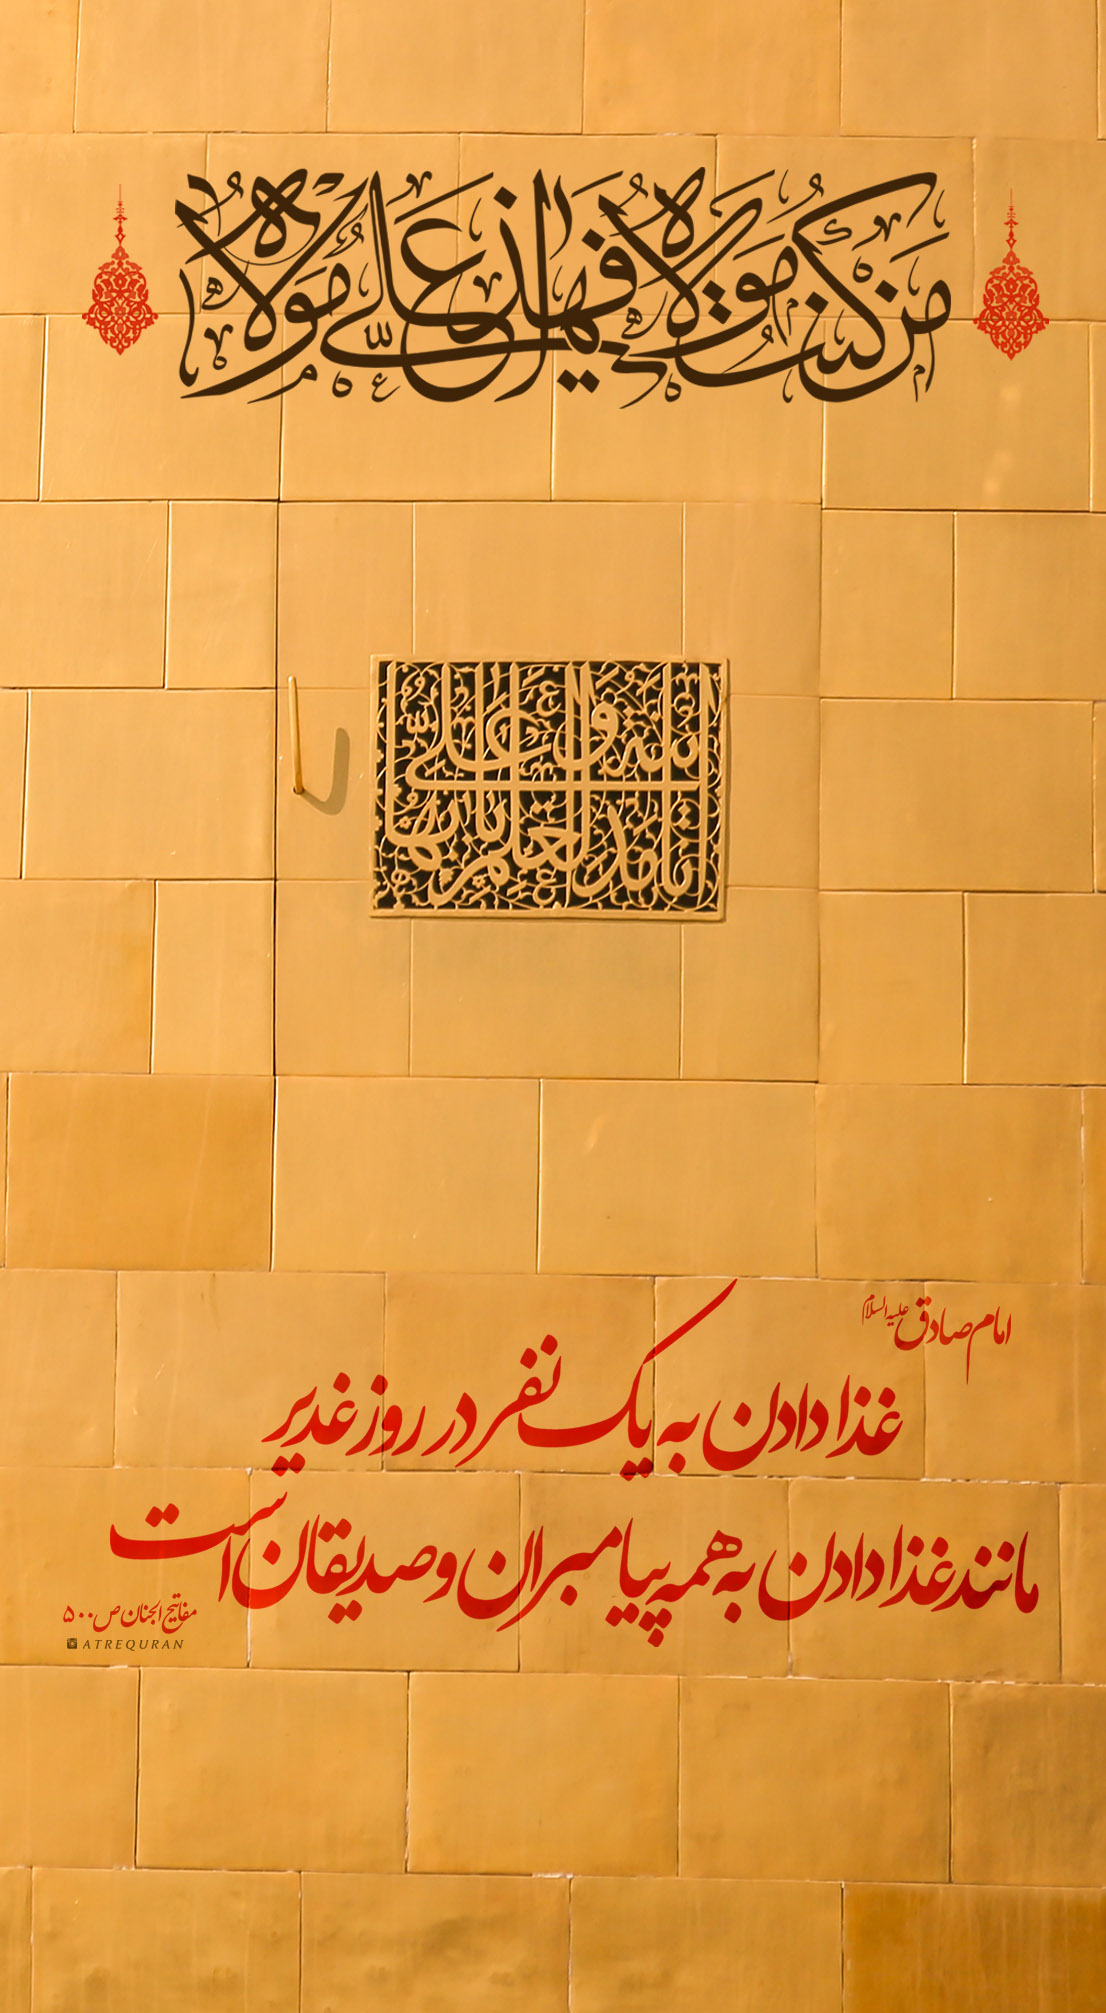 من کنت مولاه فهذا علی مولاه
انا مدینة العلم و علی بابها
امام صادق علیه‌السلام
غذا دادن به یک نفر در روز غدیر
مانند غذا دادن به همه پیامبران و صدیقان است
مفاتیح الجنان ص ۵۰۰
ATREQURAN